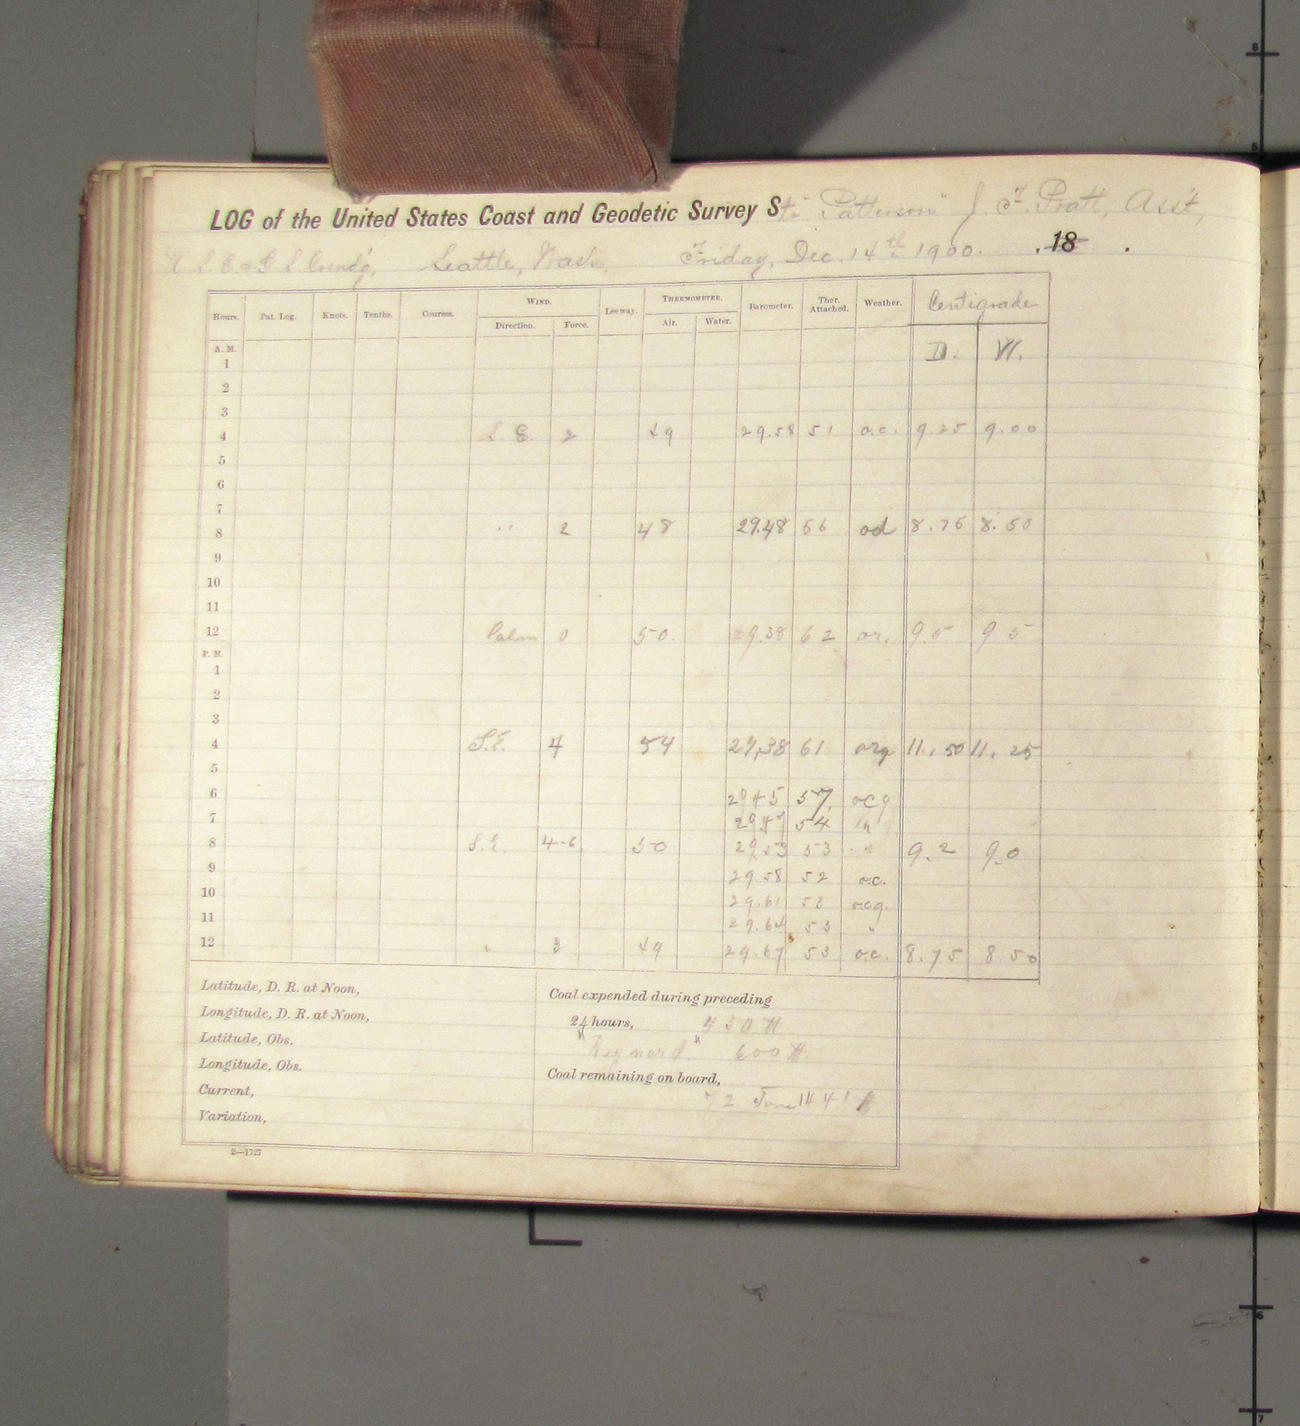 LOG of the United States Coast and Geodetic Survey Str "Patterson" J. F. Pratt, Asst,
U S C & G S Comd'g, Seattle, Wash, Friday, Dec. 14th 1900. . 18 .
Hours. Pat. Log. Knots. Tenths. Courses. WIND. Direction. Force. Leeway. THERMOMETER. Air. Water. Barometer. Ther. Attached. Weather. Centigrade
A. M. D. W.
1
2
3
4 S. E. 2 49 29.58 51 o.c. 9.25 9.00
5
6
7
8 " 2 48 29.48 56 od 8.75 8.50
9
10
11
12 Calm 0 50. 29.38 62 or. 9.5 9 5
P. M.
1
2
3
4 S.E. 4 54 29.38 61 orq 11.50 11.25
5
6 29 45 57 ocq
7 54 "
8 S.E. 4-6 50 29.53 53 " 9.2 9.0
9 29.58 52 o.c.
10 29.61 52 ocq.
11 29.64 53 "
12 " 49 29.67 53 o.c. 8.75 8 50
Latitude, D. R. at Noon,
Longitude, D. R. at Noon,
Latitude, Obs.
Longitude, Obs.
Current,
Variation,
Coal expended during preceding
24 hours, #
600 #.
Coal remaining on board,
2—1727
6
5
6
7